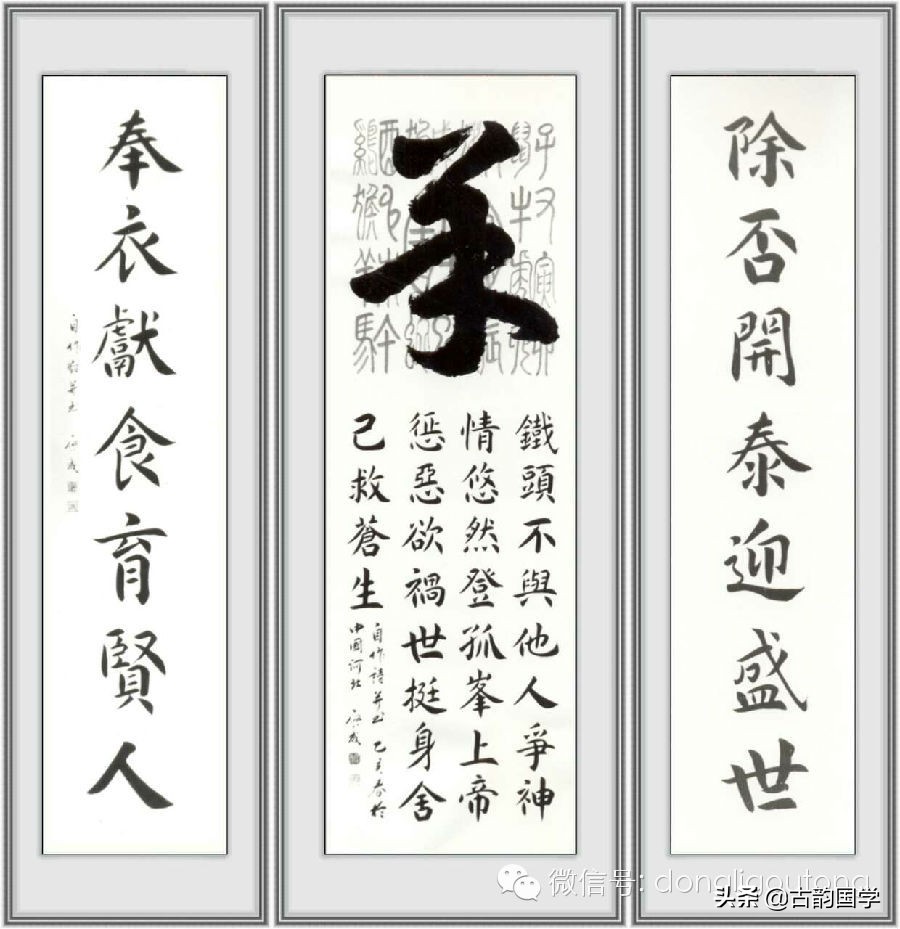 除否開泰迎盛世
羊
鐵頭不與他人爭神
情悠然登孤峯上帝
懲惡欲禍世挺身舍
己救蒼生
自作詩并书 己亥春於
中國河北
奉衣獻食育賢人
微信号: dongligoutong
头条 @古韵国学